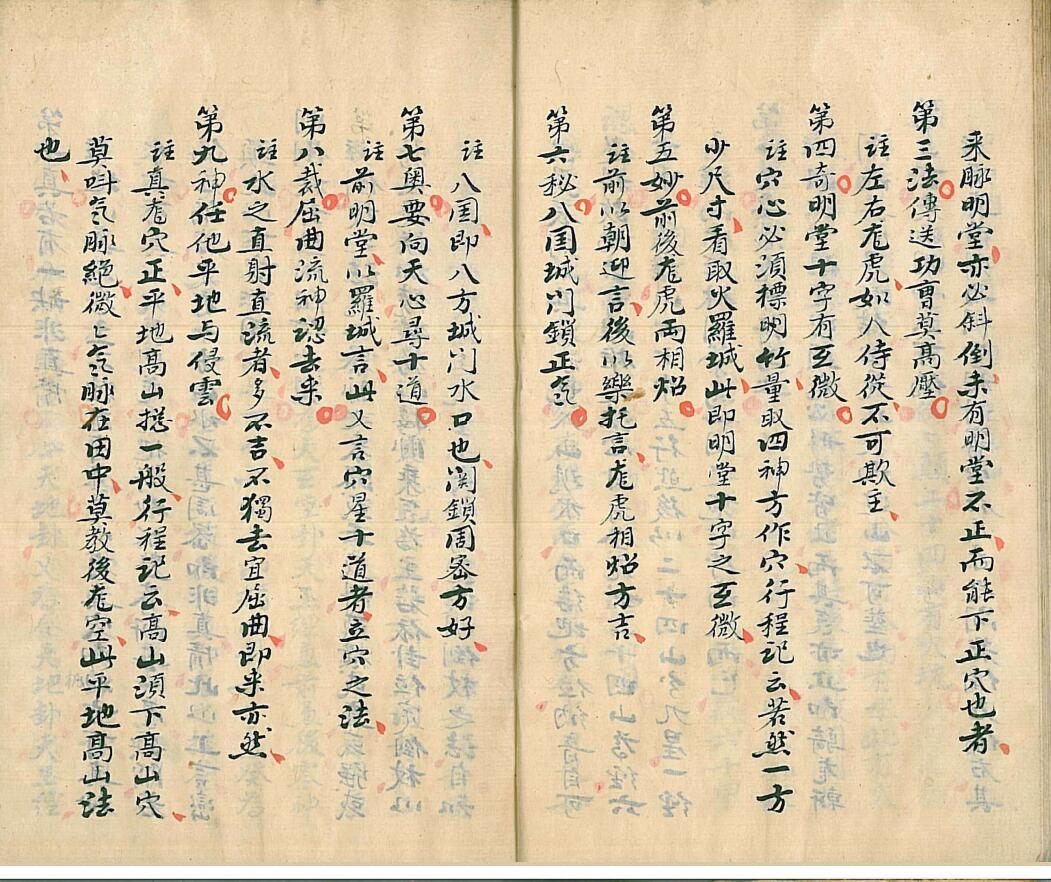 来脉明堂亦必斜倒未有明堂不正而能下正穴也者
第三法傳送功曹莫髙壓
註左右龙虎如人侍從不可欺主
第四奇明堂十字有玄微
註穴心必須標明竹量取四神方作穴行程記云若然一方
少尺寸看取火羅城此即明堂十字之玄微
第五妙前後龙虎兩相炤
註前以朝迎言後以樂托言龙虎相炤方吉
第六秘八国城门鎖正气
註八国即八方城门水口也関鎖周宻方好
第七奥要向天心尋十道
註前明堂以羅城言此又言穴星十道者立穴之法
第八裁屈曲流神認去来
註水之直射直流者多不吉不獨去宜屈曲即来亦然
第九神任他平地与侵雲
註真龙穴正平地髙山捴一般行程記云髙山須下髙山穴
莫呌气脉絶微〻气脉在田中莫教後龙空此平地髙山法
也